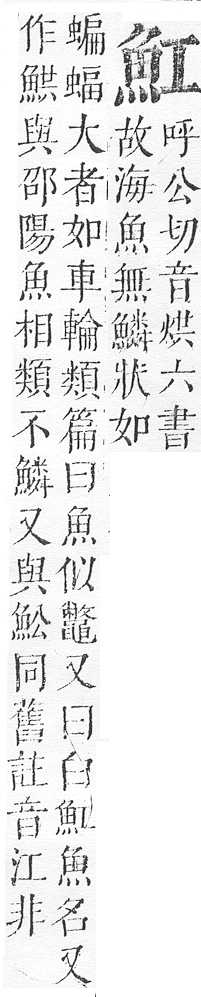 魟
呼公切音烘六書
故海魚無鱗狀如
蝙蝠大者如車輪類篇曰魚似鼈又曰白魟魚名又
作䱋與邵陽魚相類不鱗又與魿同舊註音江非